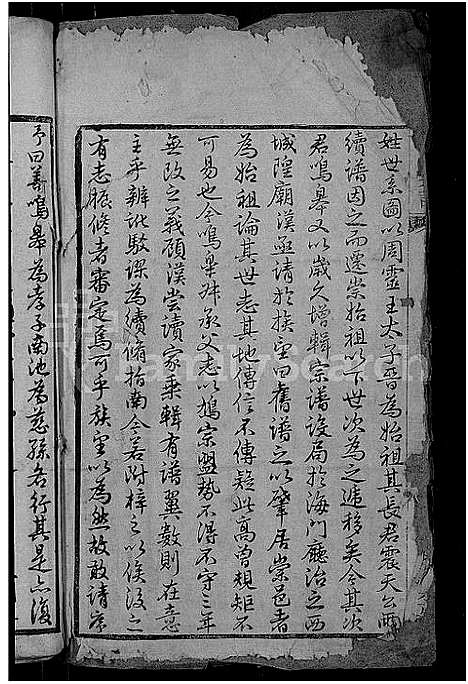 姓世系圖以周靈王太子晉為始祖其長君震天公時
續譜因之而遷崇始祖以下世次為之遞移矣今其次
君鳴皋又以歲久增輯宗譜設局於海門廳治之西
城隍廟漢亟請於族望曰舊譜之以肇居崇邑者
為始祖論其世志其地傳信不傳疑此高曾規矩不
可易也今鳴皋叔承父志以揭宗盟勢不得不守三年
無改之義顧漢嘗讀家乘輯有譜翼數則在意
主乎辨訛駁謬為續脩指南今若附梓之以俟後之
有志賑脩者審定焉可乎族望以為然故敢請序
予曰善鳴皋為孝子南池為慈孫各行其是亦復
FamilySearch